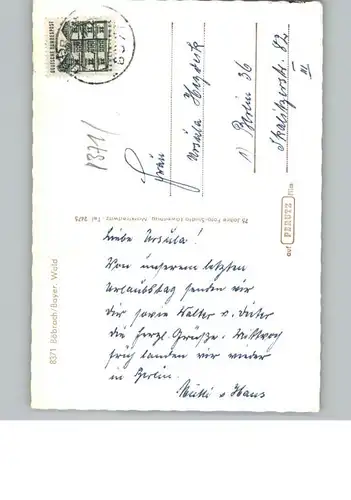 DEUTSCHE BUNDESPOST
8371
Frau
Ursula
1) Berlin 36
Skalitzerstr. 82
III
8371 Böbrach/Bayer. Wald
75 Jahre Foto-Studio
Tel. 2475
auf PERUTZ Film
Liebe Ursula!
Von unserem letzten
Urlaubstag senden wir
Dir sowie Walter u. Dieter
die herzl. Grüße. Mittwoch
früh landen wir wieder
in Berlin.
Mutti u Hans